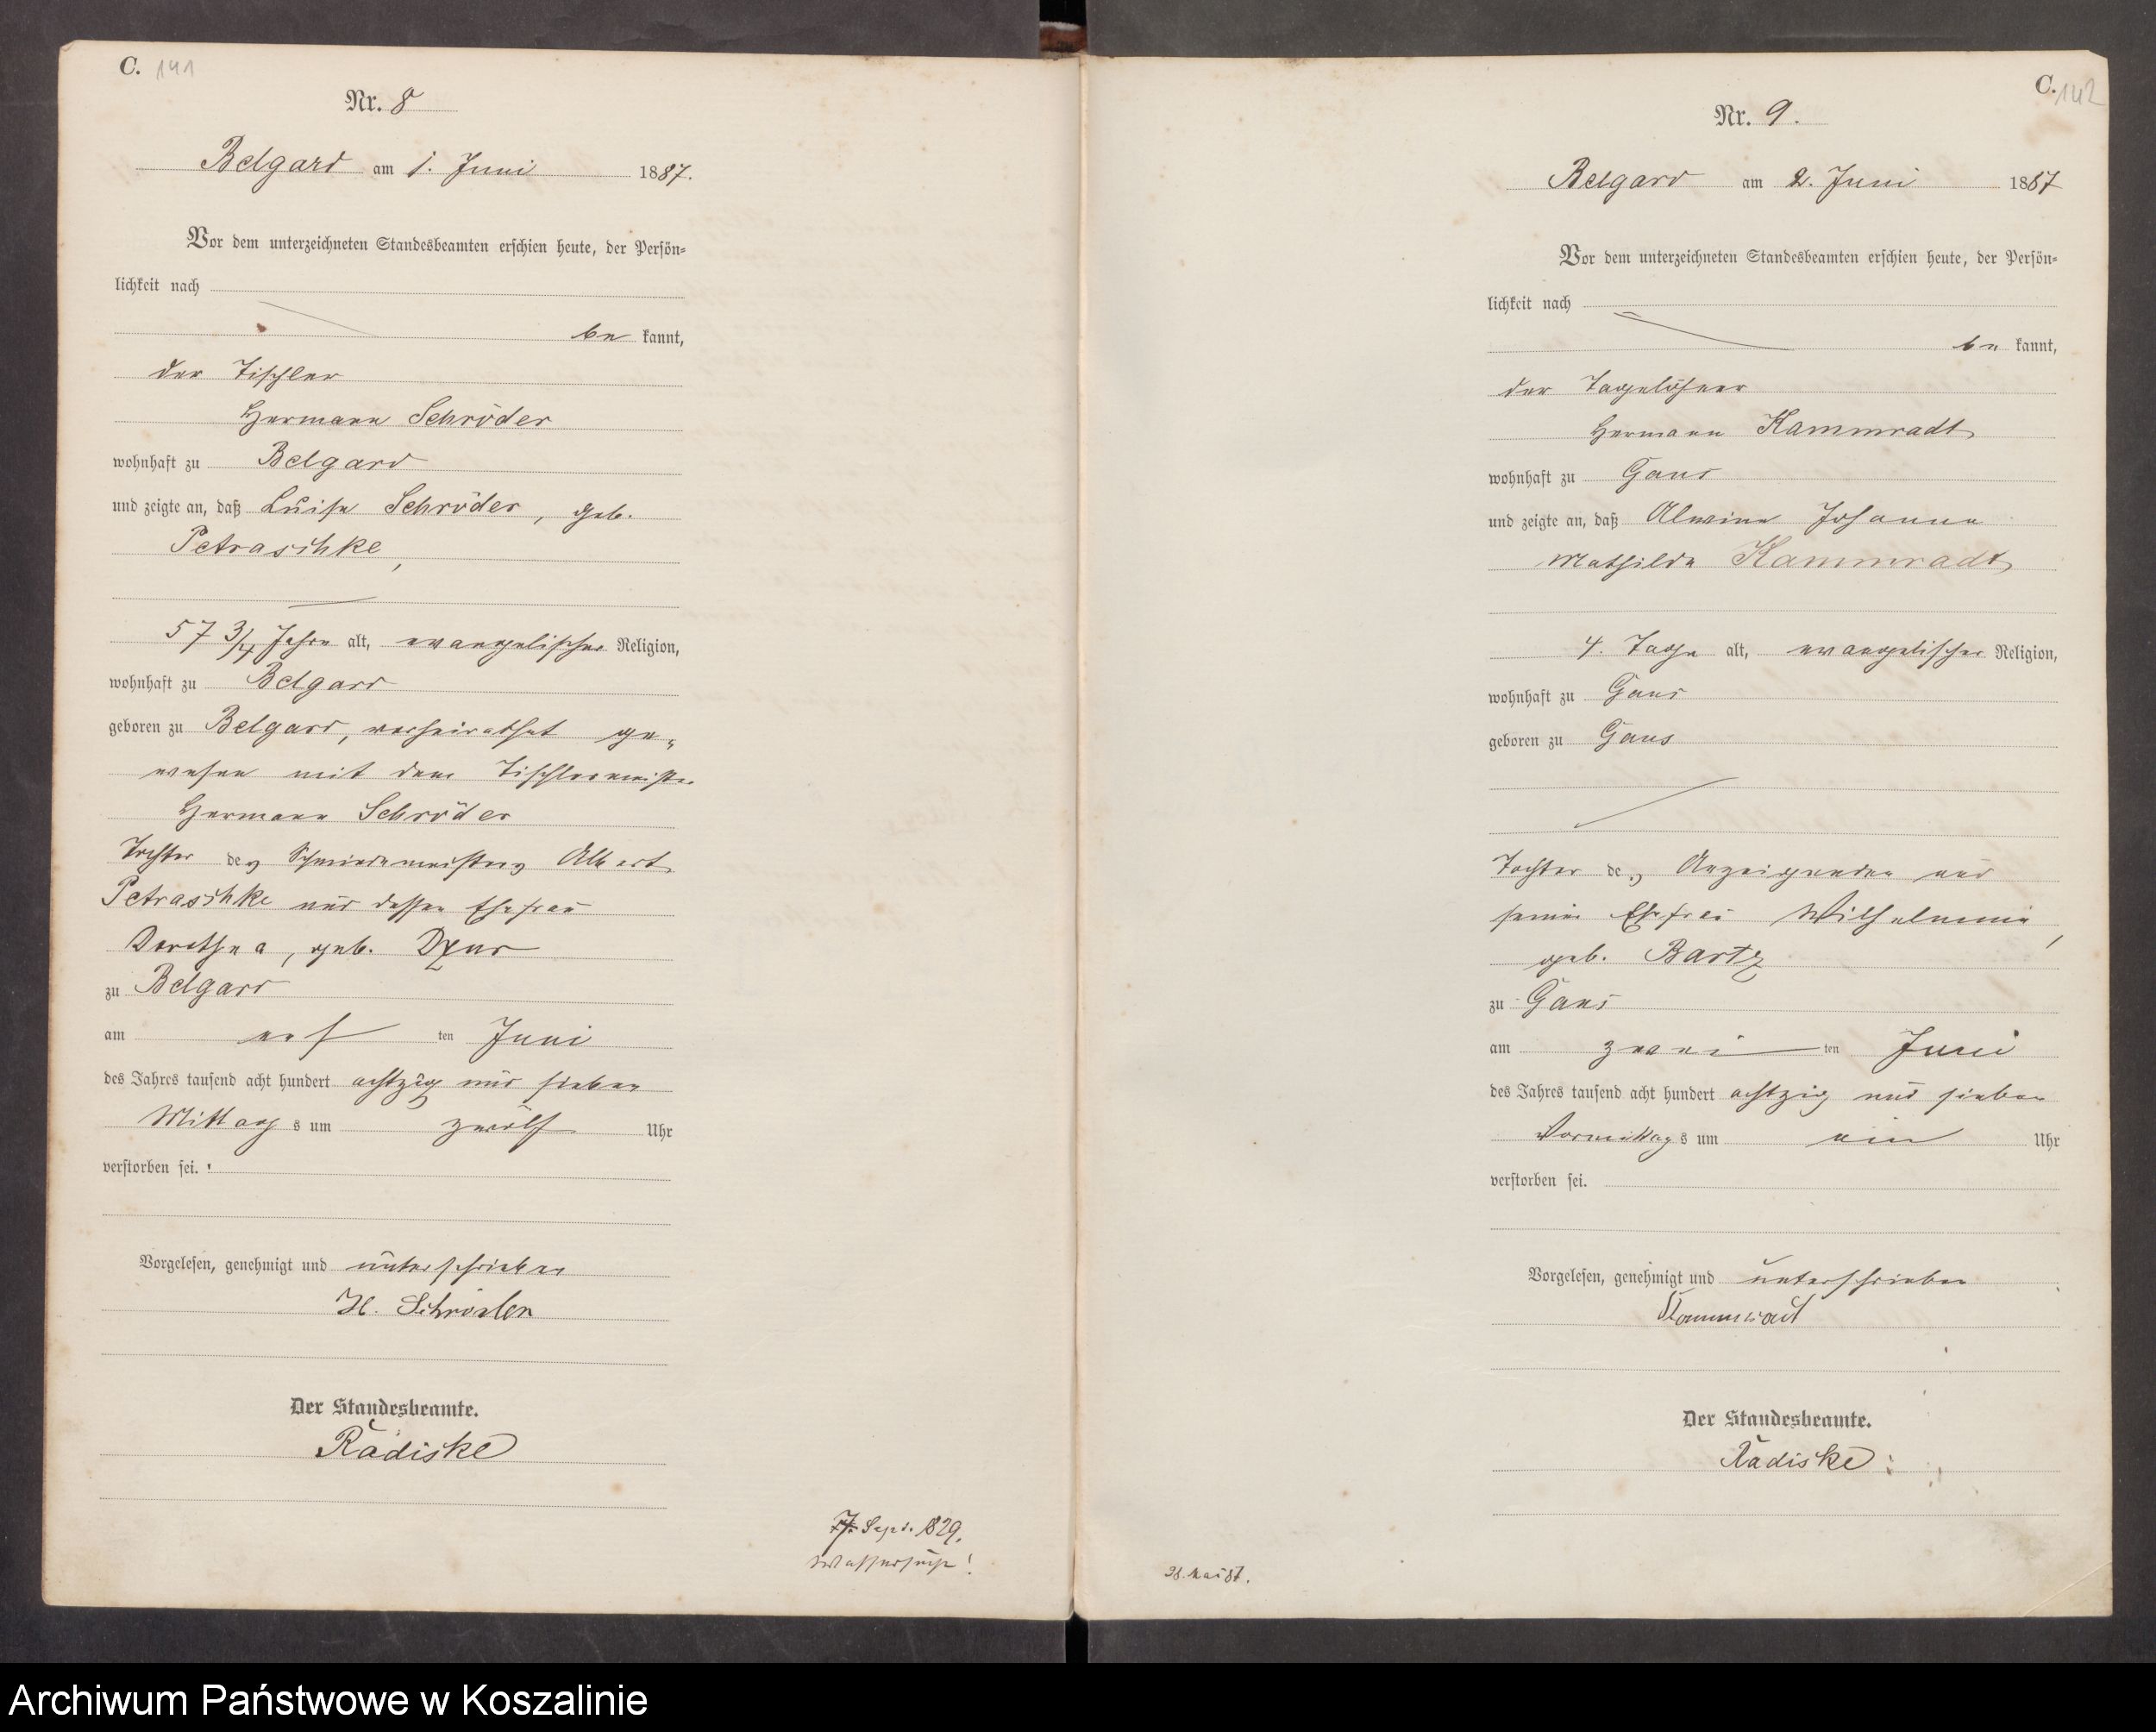 C. 141
Nr. 8
Belgard am 1. Juni 1887.
Vor dem unterzeichneten Standesbeamten erschien heute, der Persön=
lichkeit nach
be kannt,
der Tischler
Hermann Schröder
wohnhaft zu Belgard
und zeigte an, daß Luise Schröder, geb.
Petraschke,
57 3/4 Jahre alt, evangelischer Religion,
wohnhaft zu Belgard
geboren zu Belgard, verheirathet ge=
wesen mit dem Tischlermeister
Hermann Schröder
Tochter des Schmiedemeisters Albert
Petraschke und dessen Ehefrau
Dorothea, geb.
zu Belgard
am ersten Juni
des Jahres tausend acht hundert achtzig und sieben
Mittags um zwölf Uhr
verstorben sei.
Vorgelesen, genehmigt und unterschrieben
H. Schröder
Der Standesbeamte.
Radiske
7. Sept. 1829.
Wassersucht!
C. 142
Nr. 9.
Belgard am 2. Juni 1887
Vor dem unterzeichneten Standesbeamten erschien heute, der Persön=
lichkeit nach
be kannt,
der Tagelöhner
Hermann Kammradt
wohnhaft zu Gans
und zeigte an, daß Alwine Johanna
Mathilde Kammradt
4. Tage alt, evangelischer Religion,
wohnhaft zu Gans
geboren zu Gans
Tochter des Anzeigenden und
seiner Ehefrau Wilhelmine,
geb. Bartz
zu Gans
am zweiten Juni
des Jahres tausend acht hundert achtzig und sieben
Vormittags um ein Uhr
verstorben sei.
Vorgelesen, genehmigt und unterschrieben
Kammradt
Der Standesbeamte.
Radiske
28. Mai 87.
Archiwum Państwowe w Koszalinie